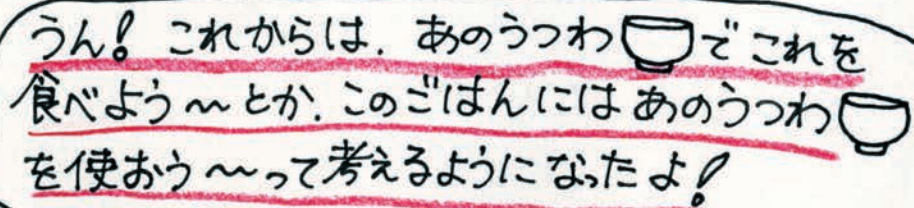 うん！これからは、あのうつわでこれを
食べよう〜とか、このごはんにはあのうつわ
を使おう〜って考えるようになったよ！